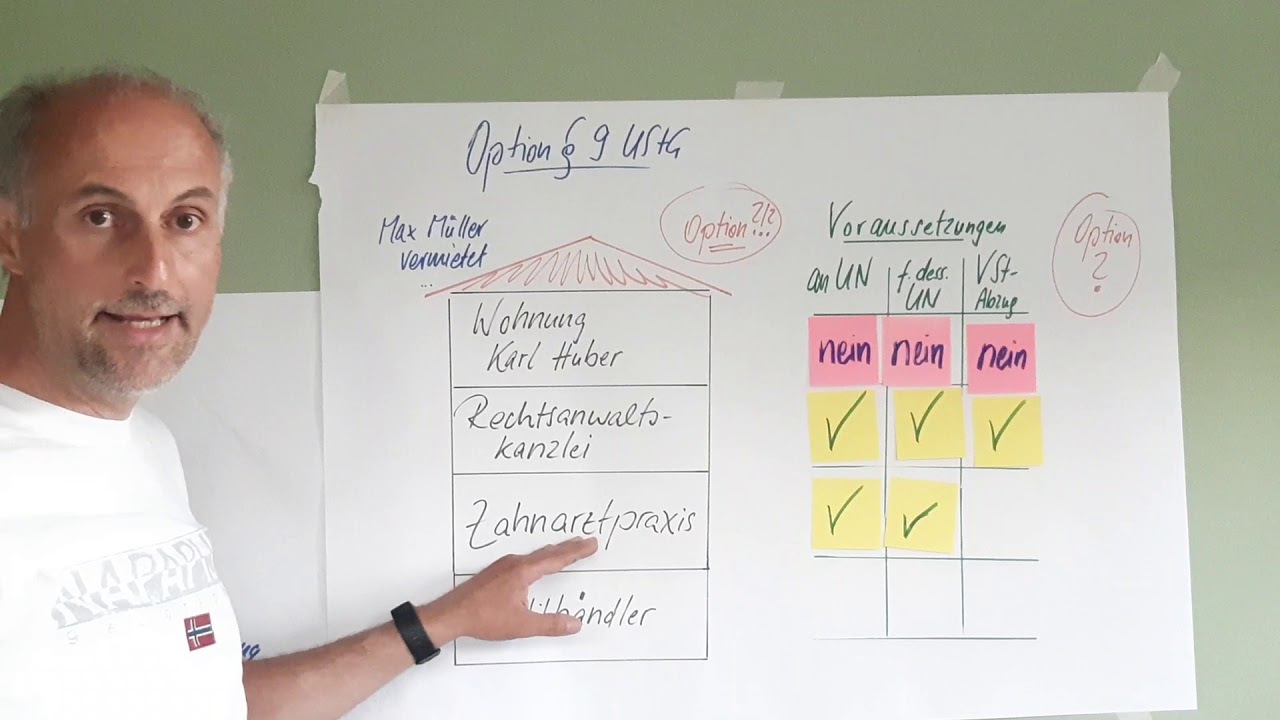 Option § 9 UStG
Max Müller
vermietet
...
Option ?!?
...
Voraussetzungen
an UN
f. dess.
UN
VSt-
Abzug
Option
?
Wohnung
Karl Huber
nein
nein
nein
Rechtsanwalts-
kanzlei
✓
✓
✓
Zahnarztpraxis
✓
✓
händler
NAPAPIJRI